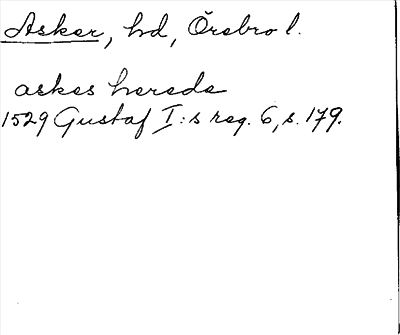 Asker, hd, Örebro l.
askes herede
1529 Gustaf I:s reg. 6, s. 179.